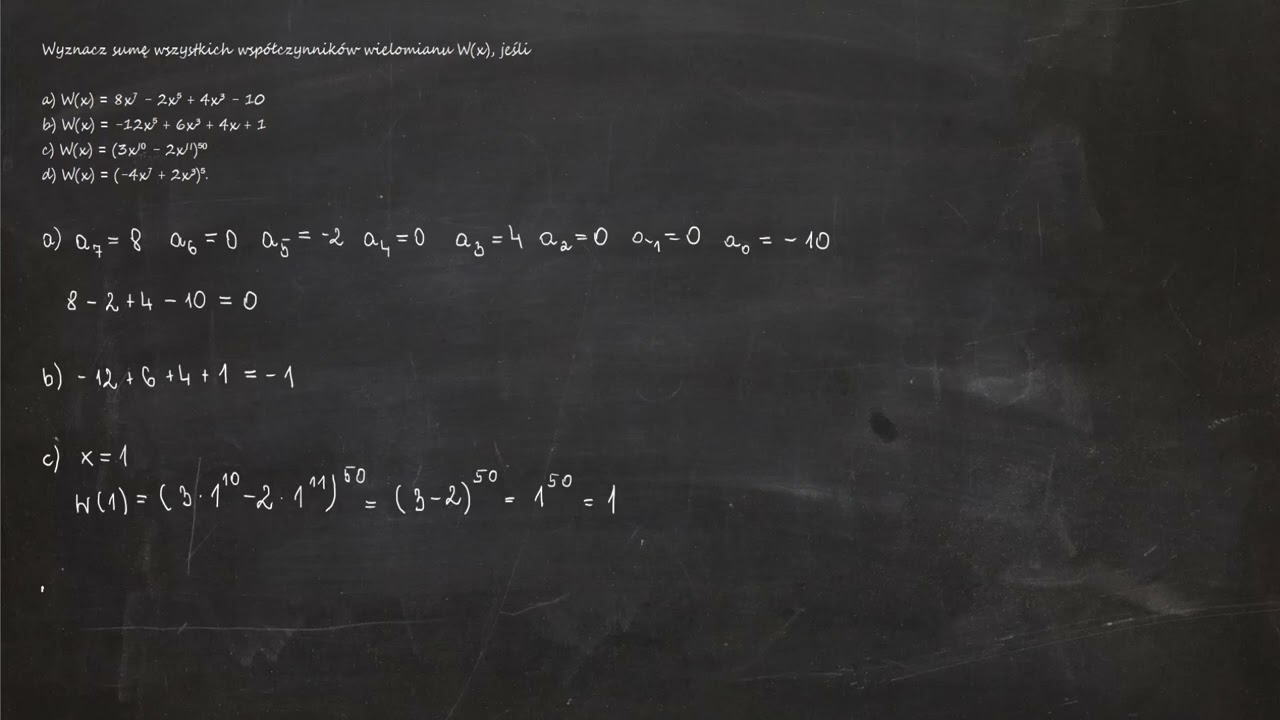 Wyznacz sumę wszystkich współczynników wielomianu W(x), jeśli
a) W(x) = 8x⁷ - 2x⁵ + 4x³ - 10
b) W(x) = -12x⁵ + 6x³ + 4x + 1
c) W(x) = (3x¹⁰ - 2x¹¹)⁵⁰
d) W(x) = (-4x⁷ + 2x³)⁵.
a) a₇ = 8 a₆ = 0 a₅ = -2 a₄ = 0 a₃ = 4 a₂ = 0 a₁ = 0 a₀ = - 10
8 - 2 + 4 - 10 = 0
b) - 12 + 6 + 4 + 1 = - 1
c) x = 1
W(1) = (3 · 1¹⁰ - 2 · 1¹¹)⁵⁰ = (3 - 2)⁵⁰ = 1⁵⁰ = 1